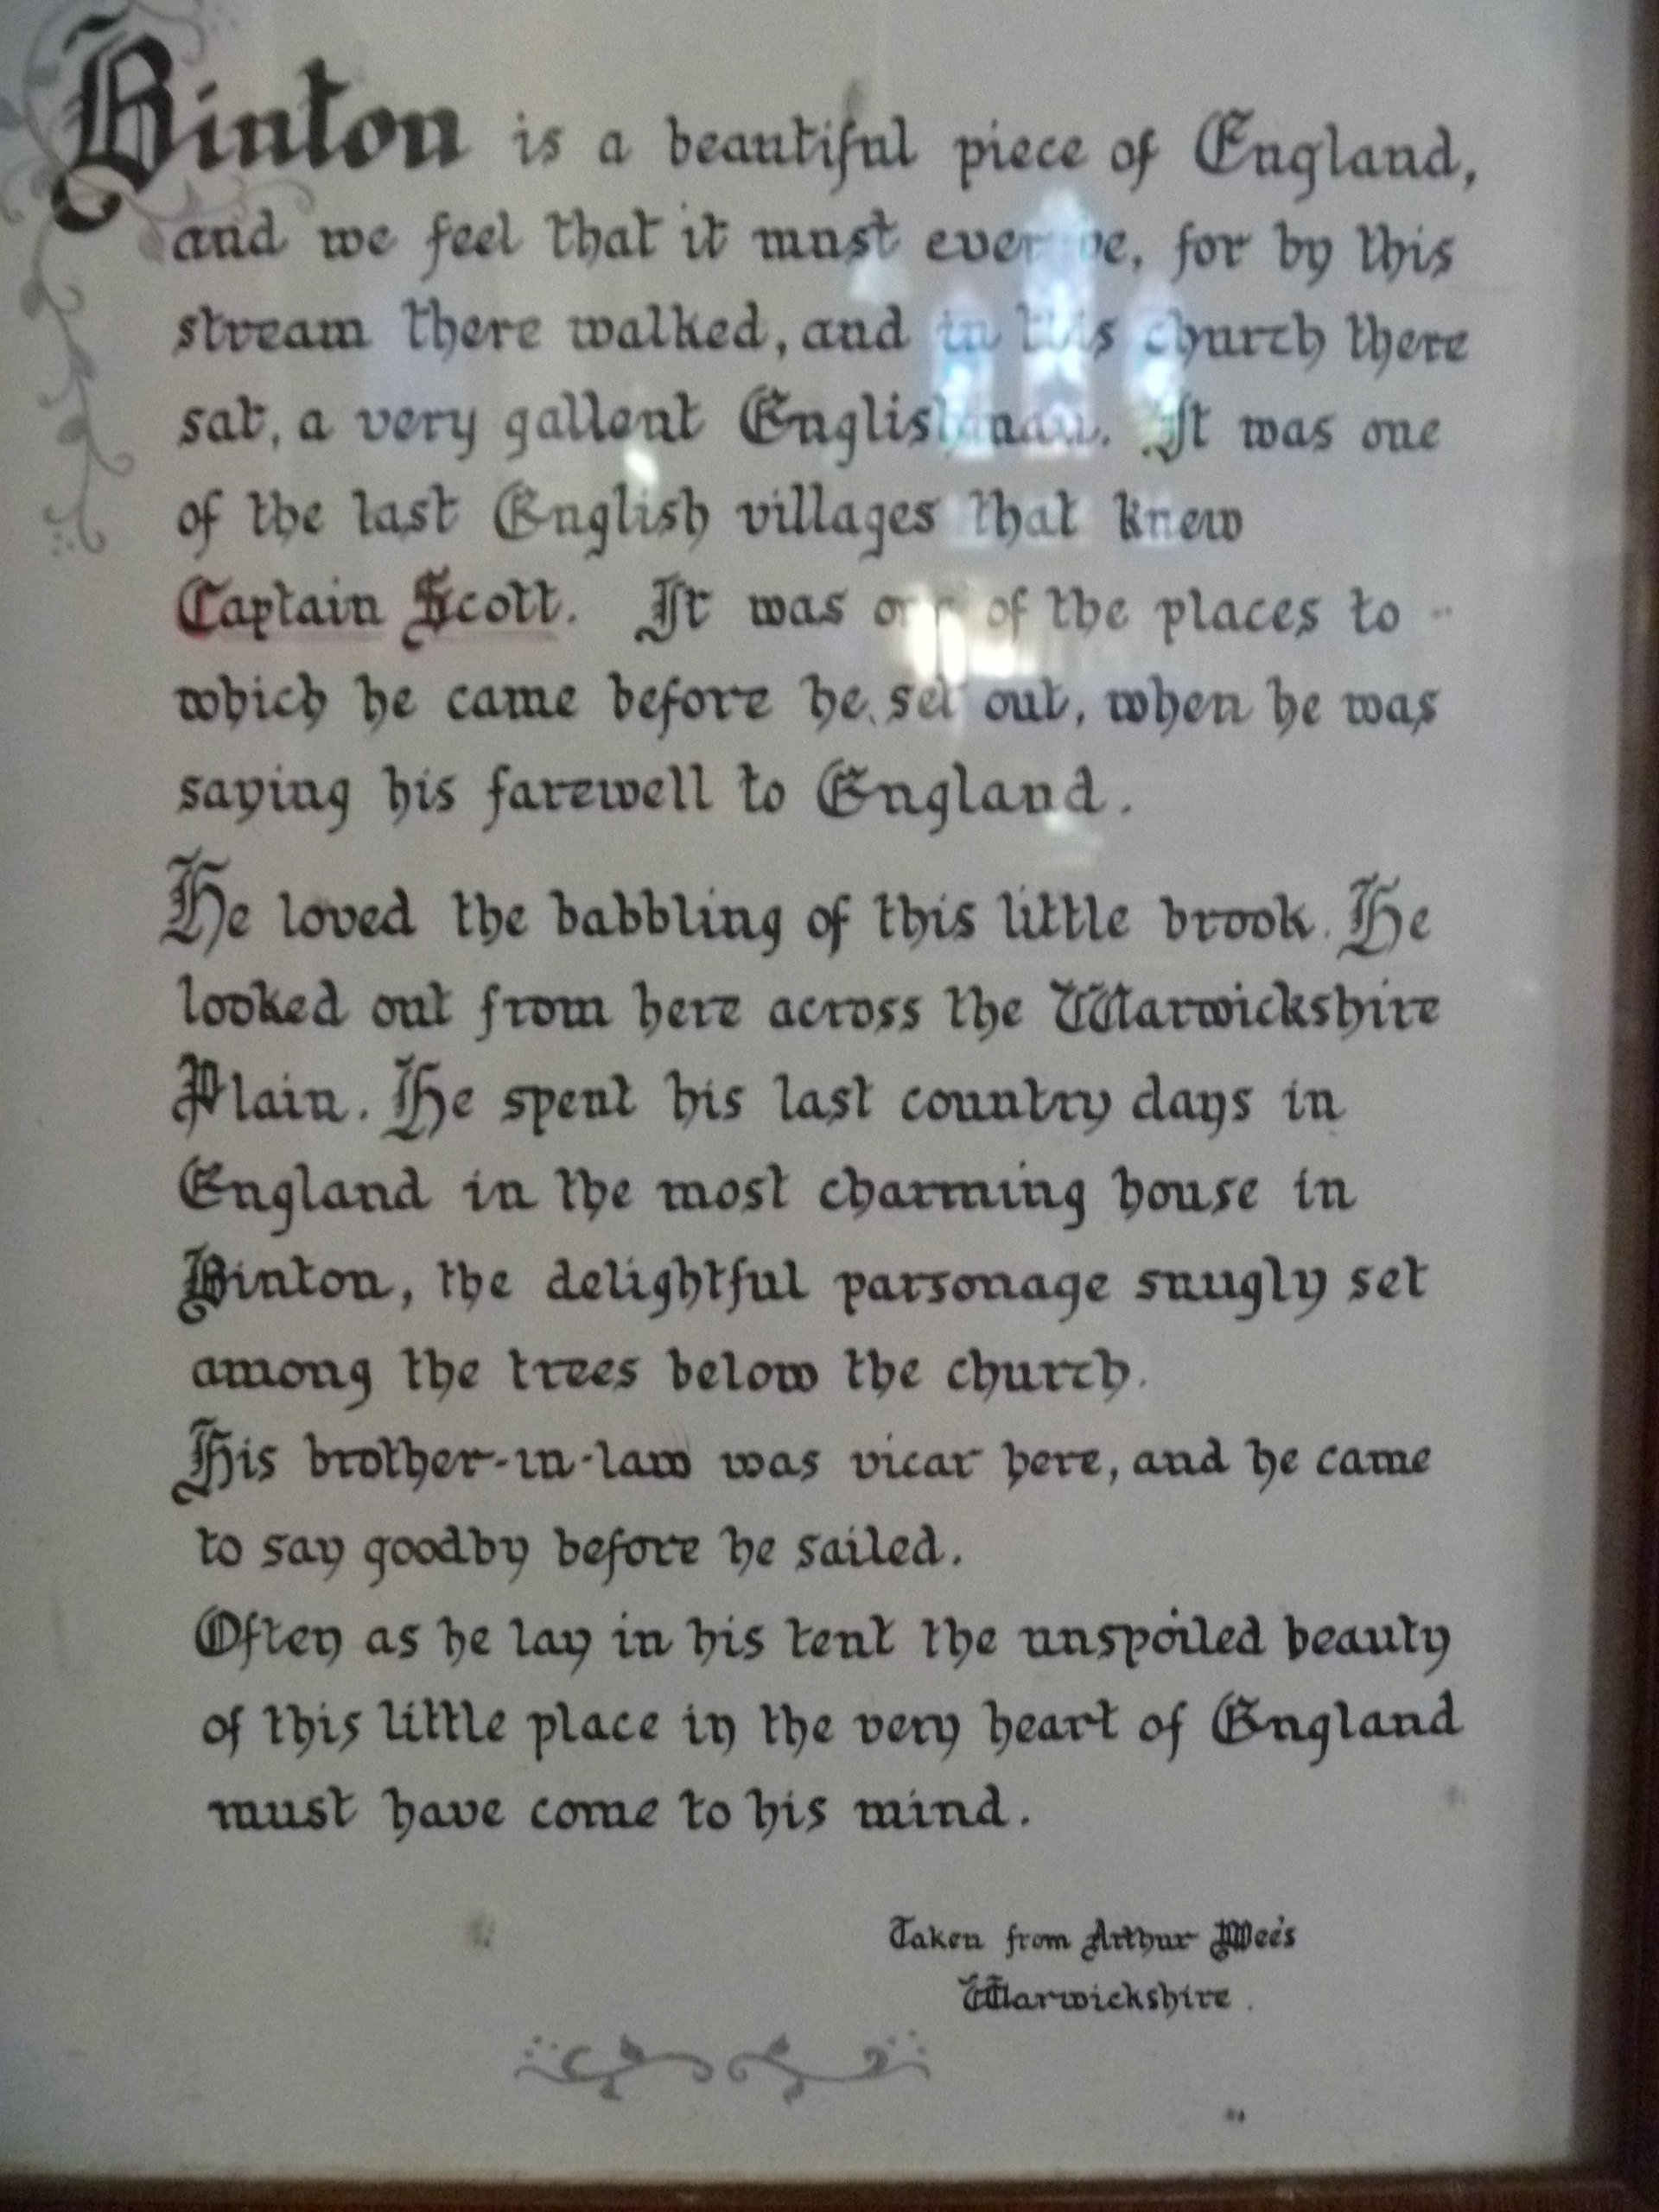 Binton is a beautiful piece of England,
and we feel that it must ever be, for by this
stream there walked, and in this church there
sat, a very gallent Englishman. It was one
of the last English villages that knew
Captain Scott. It was one of the places to
which he came before he set out, when he was
saying his farewell to England.
He loved the babbling of this little brook. He
looked out from here across the Warwickshire
Plain. He spent his last country days in
England in the most charming house in
Binton, the delightful parsonage snugly set
among the trees below the church.
His brother-in-law was vicar here, and he came
to say goodby before he sailed.
Often as he lay in his tent the unspoiled beauty
of this little place in the very heart of England
must have come to his mind.
Taken from Arthur Mee's
Warwickshire.